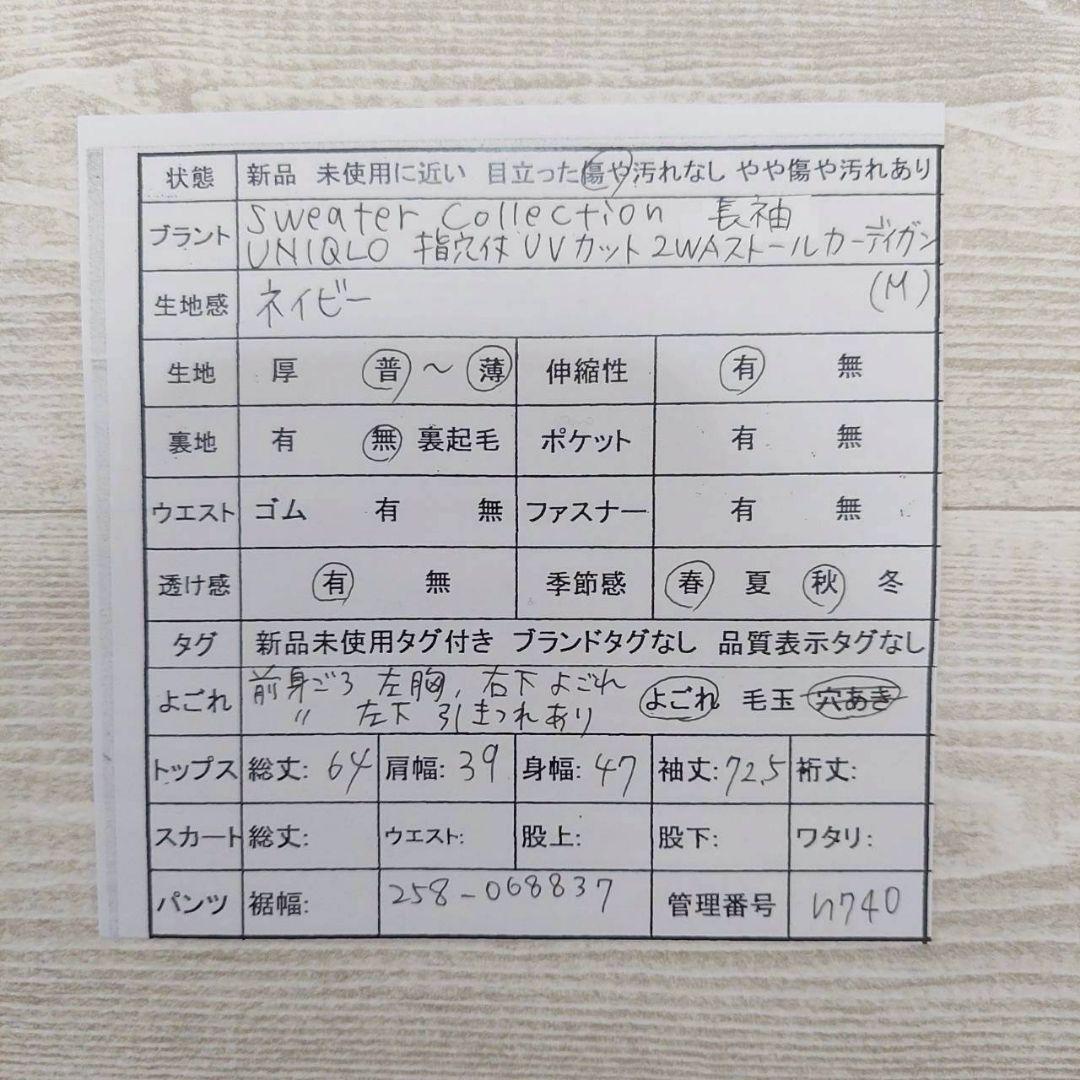 状態 新品 未使用に近い 目立った傷や汚れなし やや傷や汚れあり
ブランド Sweater Collection 長袖
UNIQLO 指穴付 UVカット 2WAストールカーディガン
(M)
生地感 ネイビー
生地 厚 普 〜 薄 伸縮性 有 無
裏地 有 無 裏起毛 ポケット 有 無
ウエスト ゴム 有 無 ファスナー 有 無
透け感 有 無 季節感 春 夏 秋 冬
タグ 新品未使用タグ付き ブランドタグなし 品質表示タグなし
よごれ 前身ごろ 左胸、右下 よごれ よごれ 毛玉 穴あき
〃 左下 引きつれあり
トップス 総丈: 64 肩幅: 39 身幅: 47 袖丈: 72.5 裄丈:
スカート 総丈: ウエスト: 股上: 股下: ワタリ:
パンツ 裾幅: 258-068837 管理番号 い740